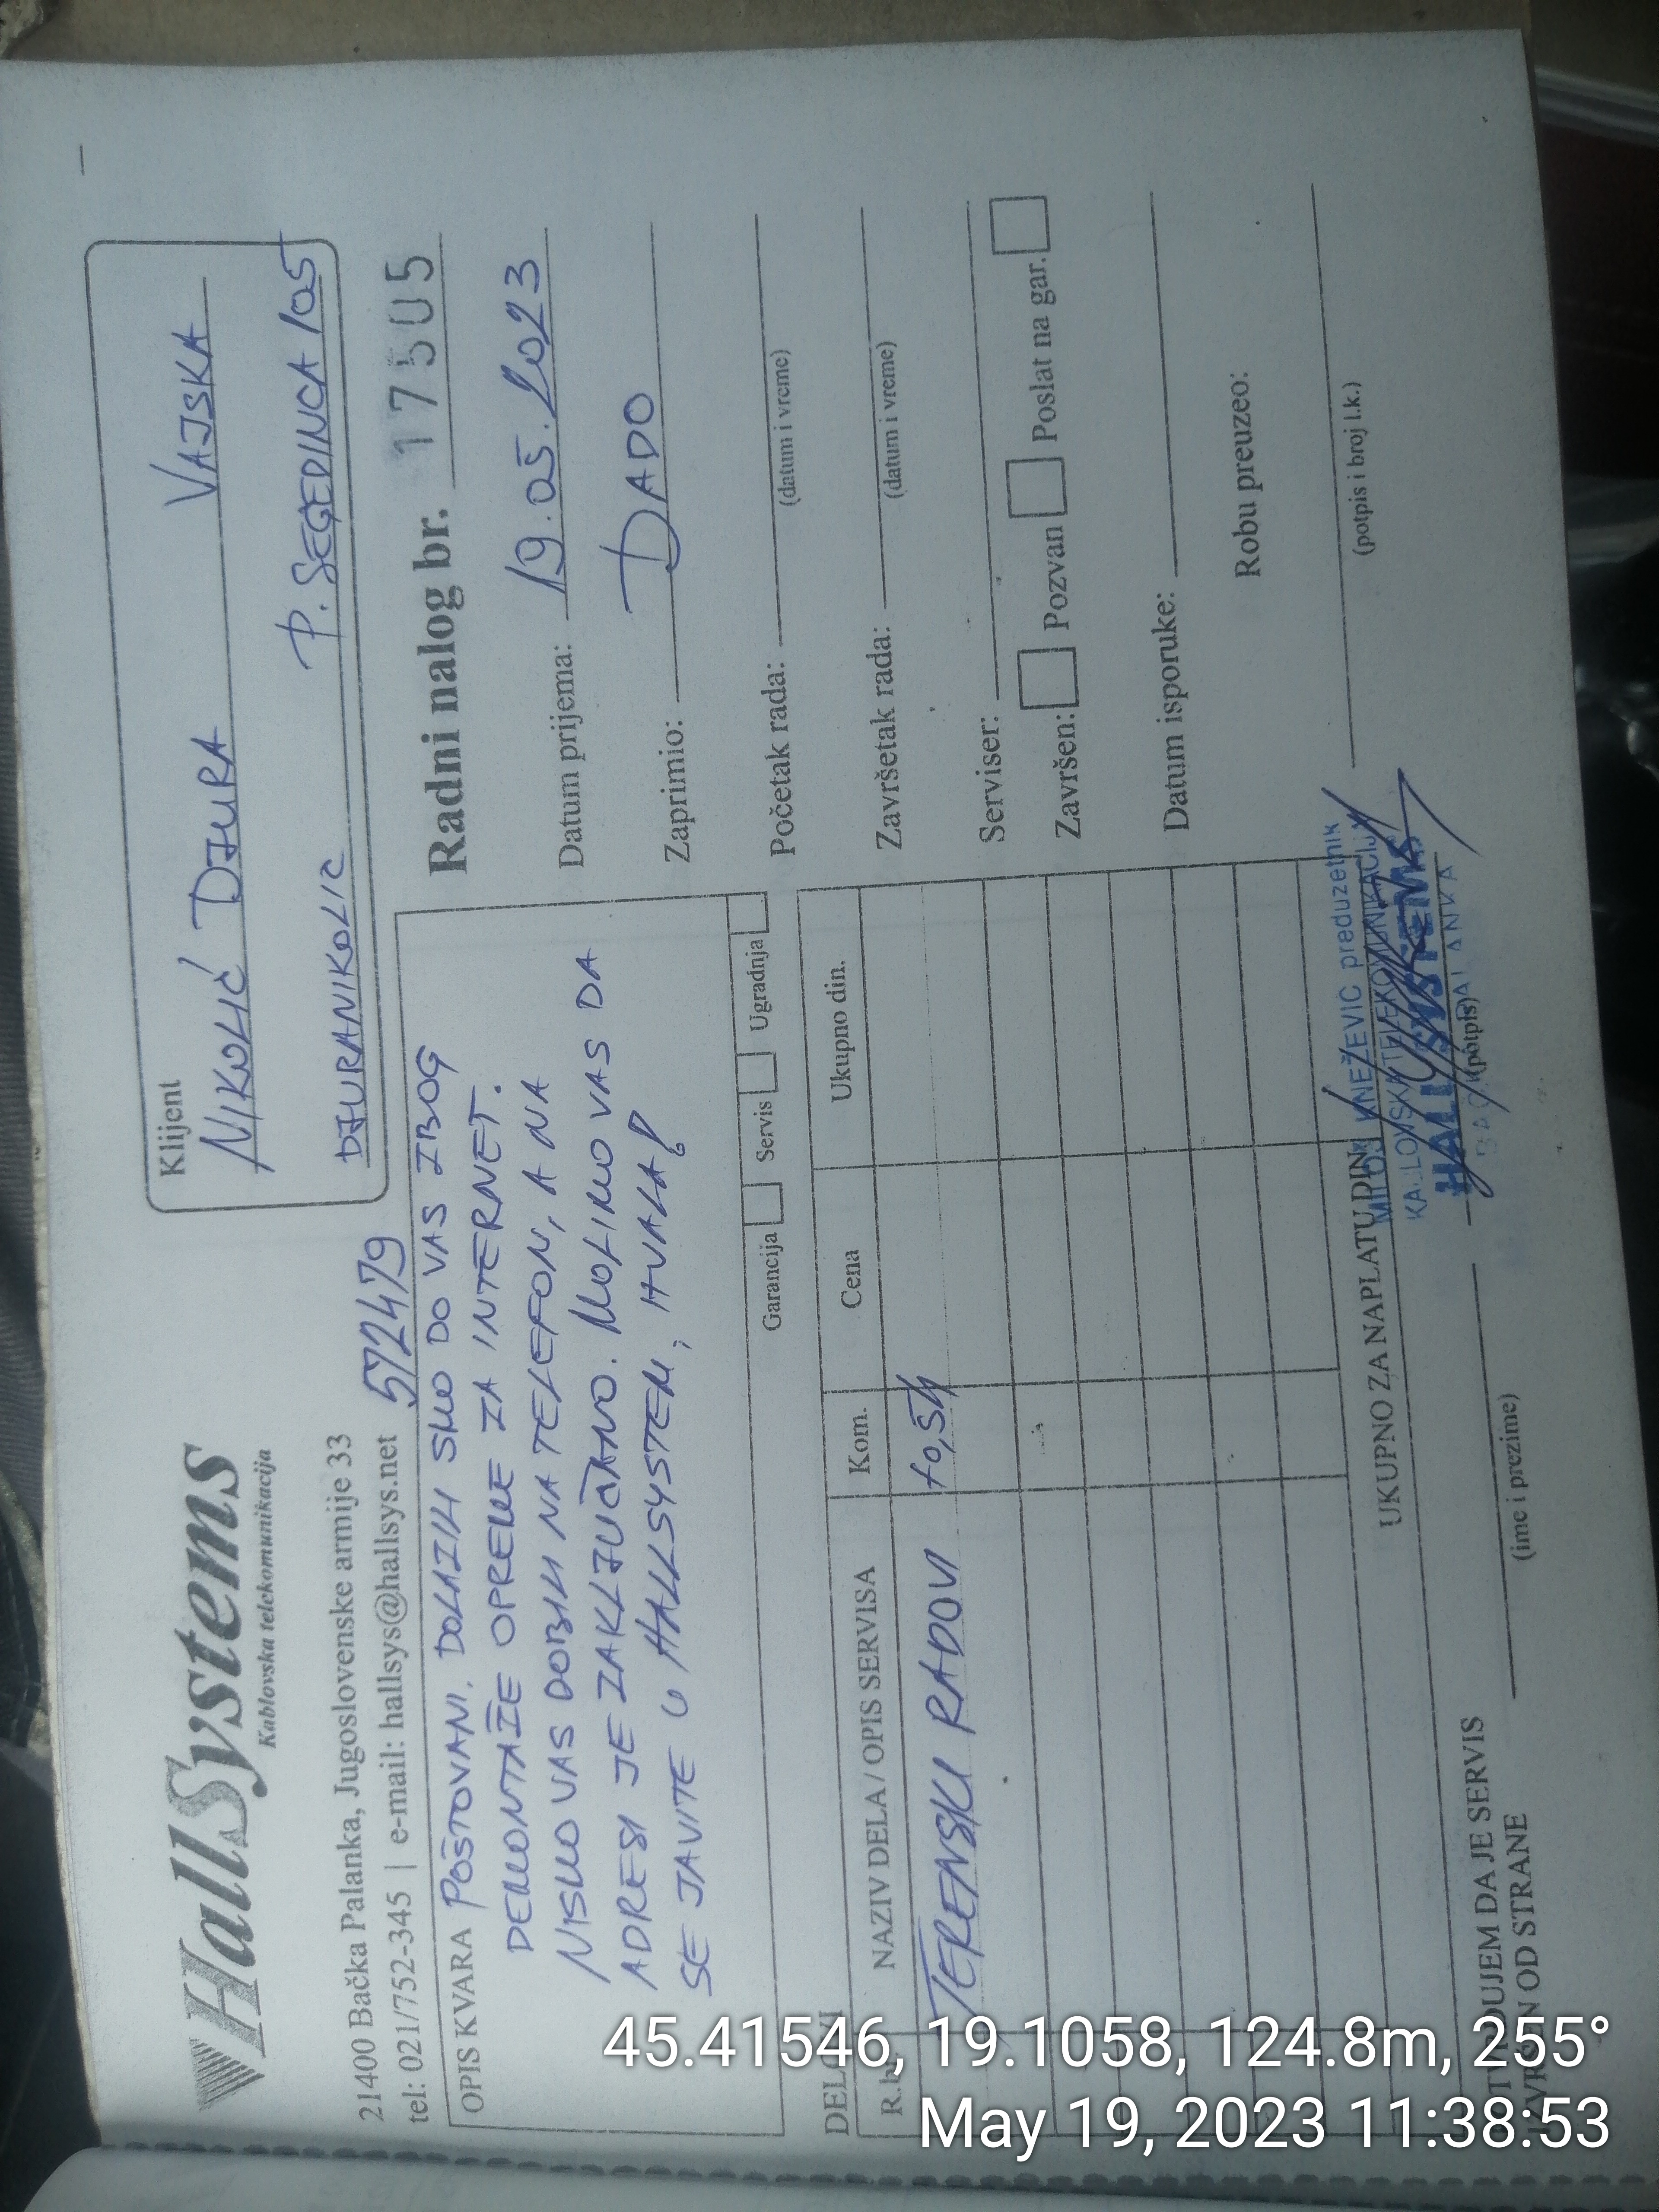 HallSystems
Kablovska telekomunikacija
21400 Bačka Palanka, Jugoslovenske armije 33
tel: 021/752-345 | e-mail: hallsys@hallsys.net
572479
Klijent
NIKOLIĆ DJURA VAJSKA
P. SEGEDINCA 105
DJURANIKOLIC
OPIS KVARA POŠTOVANI. DOLAZILI SMO DO VAS ZBOG
DEMONTAŽE OPREME ZA INTERNET.
NISMO VAS DOBILI NA TELEFON, A NA
ADRESI JE ZAKLJUČANO. MOLIMO VAS DA
SE JAVITE U HALLSYSTEM, HVALA!
Garancija Servis Ugradnja
Radni nalog br. 17505
Datum prijema: 19.05.2023
Zaprimio: DADO
Početak rada:
(datum i vreme)
Završetak rada:
(datum i vreme)
Serviser:
Završen: Pozvan Poslat na gar.
Datum isporuke:
Robu preuzeo:
(potpis i broj l.k.)
NAZIV DELA / OPIS SERVISA Kom. Cena Ukupno din.
TERENSKI RADOVI
UKUPNO ZA NAPLATU DIN.
KNEŽEVIĆ preduzetnik
HALL SYSTEMS
DA JE SERVIS
OD STRANE
(ime i prezime)
(potpis)
45.41546, 19.1058, 124.8m, 255°
May 19, 2023 11:38:53